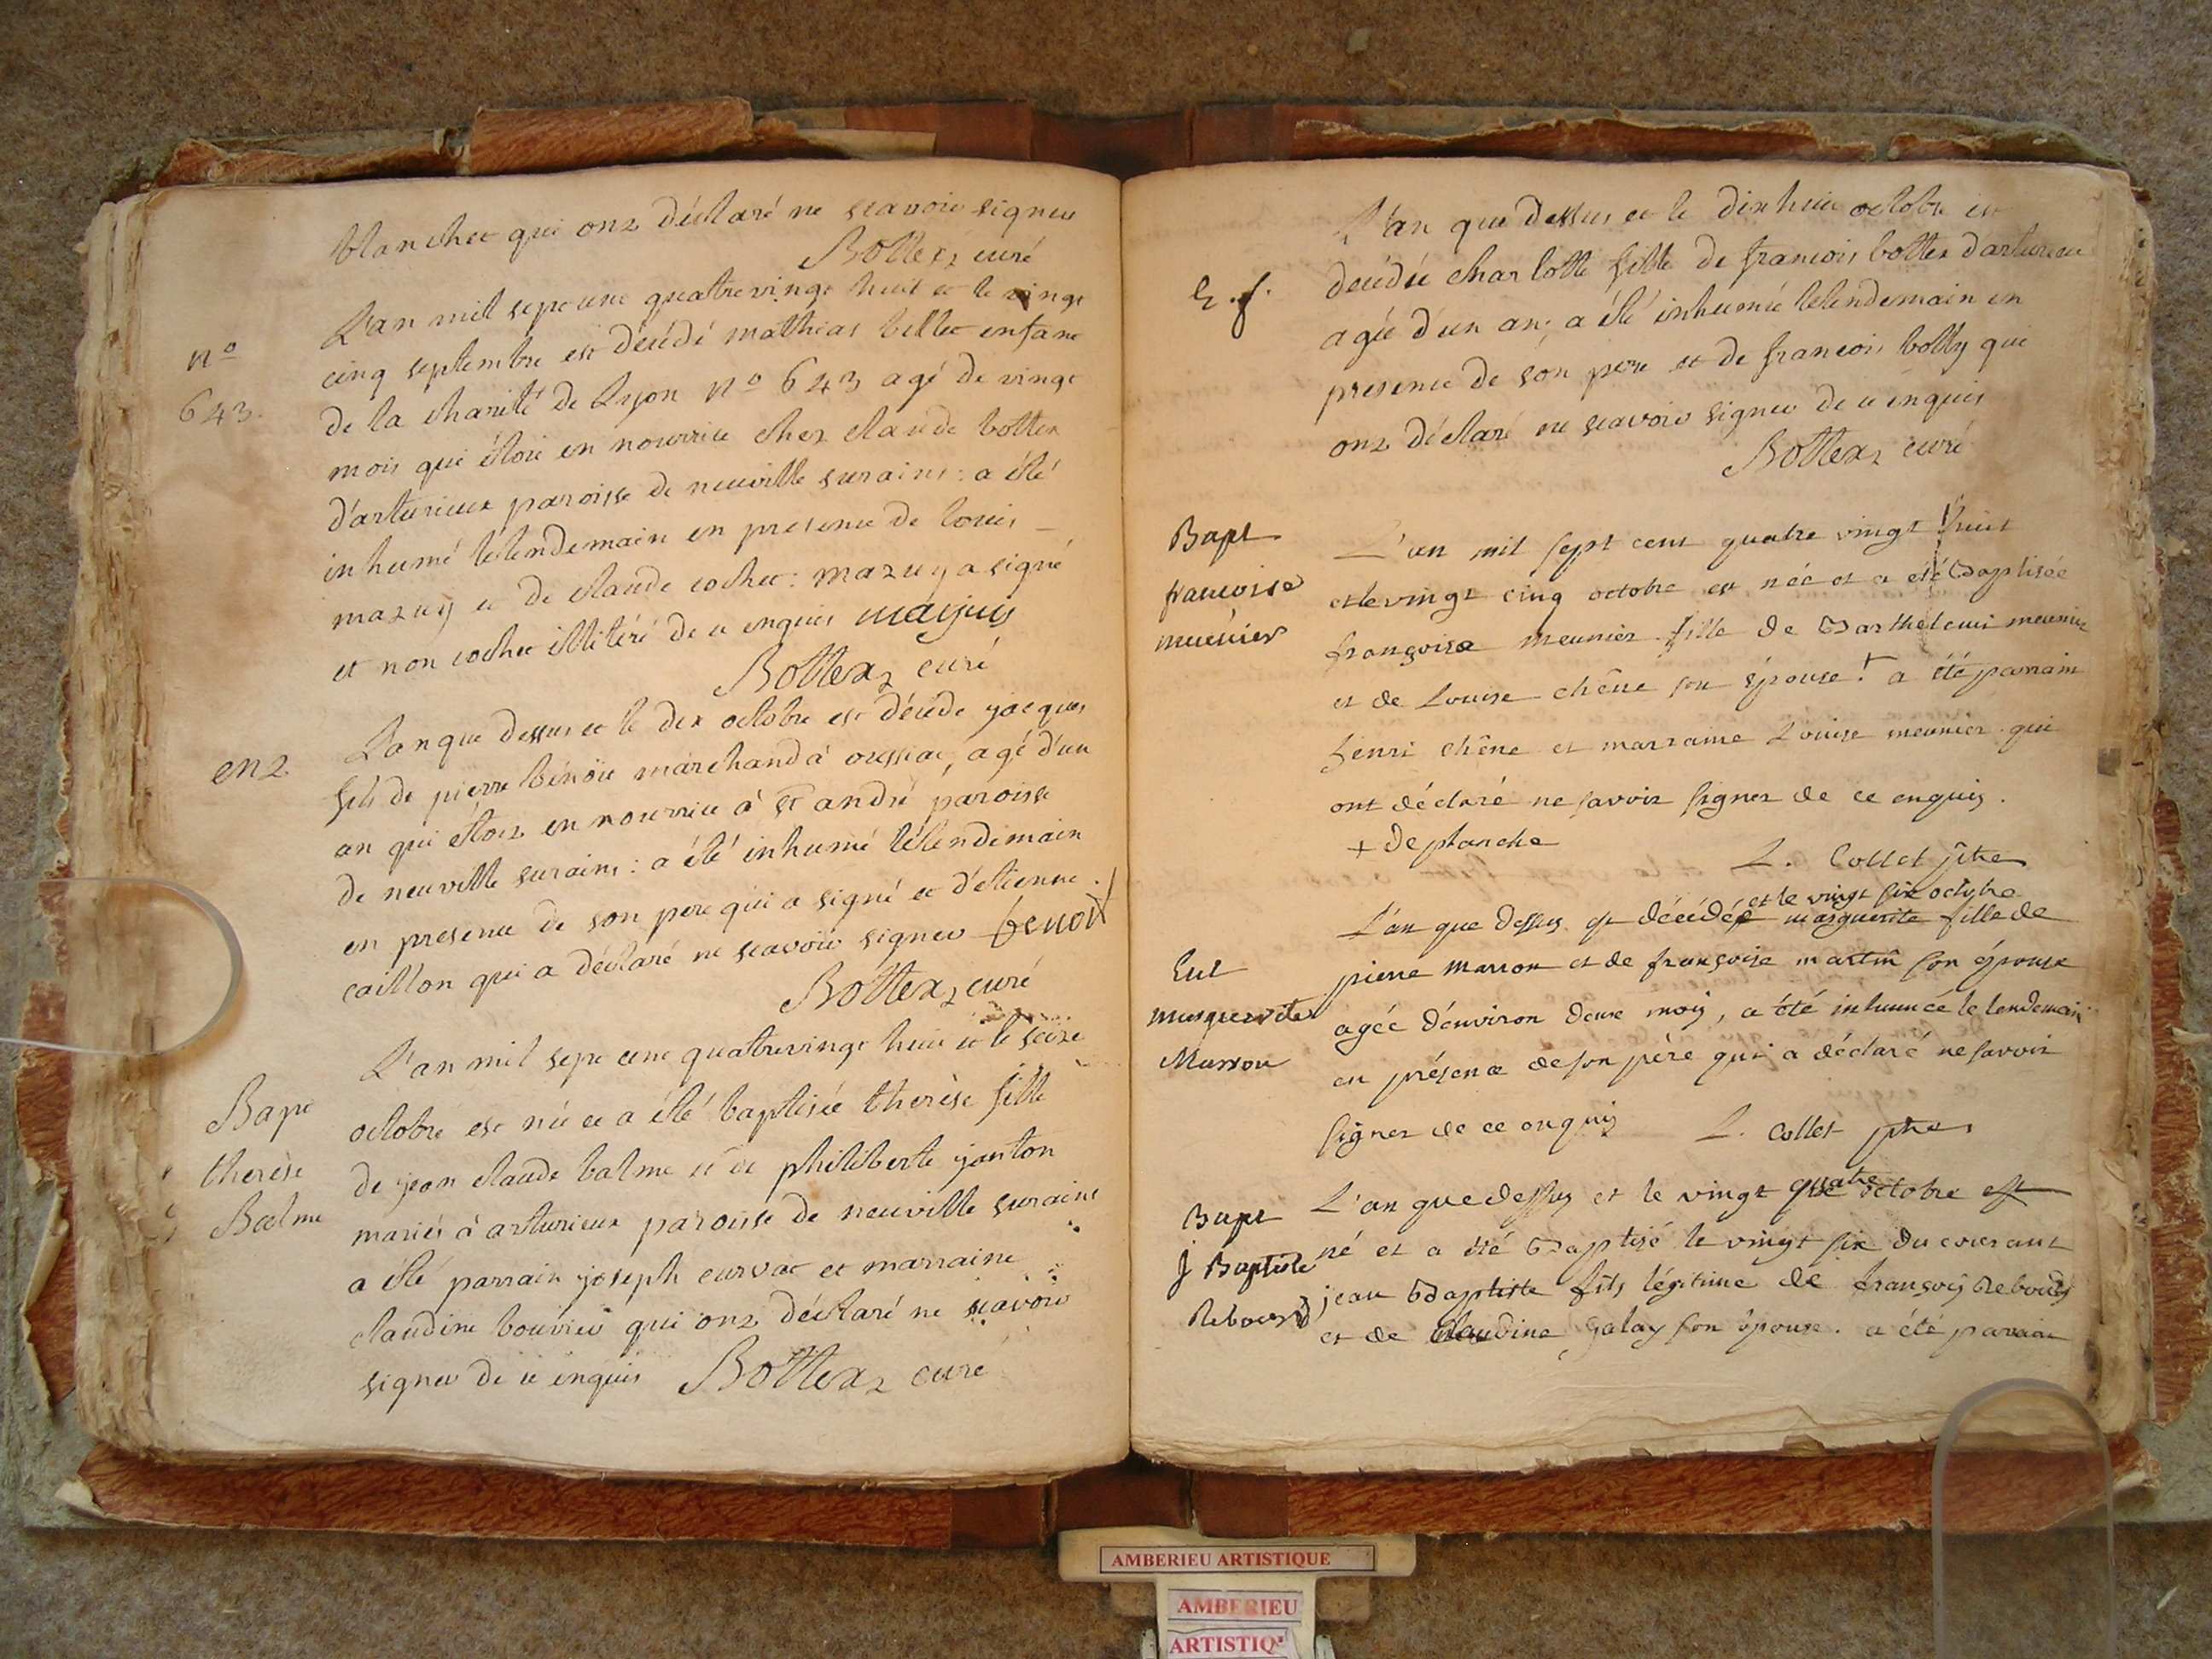 blanchet qui onz déclaré ne scavoir signer
Bottex curé
n°
643.
L'an mil sept cent quatrevingt huit et le vingt
cinq septembre est décédé mathias billet enfant
de la charité de Lyon n° 643 agé de vingt
mois qui étoit en nourrice chez claude bottex
d'arturieux paroisse de neuville surains : a été
inhumé lelendemain en presence de louis
mazuy et de claude cochet : mazuy a signé
et non cochet illitéré de ce enquis mazuy
Bottex curé
enz
L'an que dessus et le dix octobre est décédé jacques
fils de pierre bénoit marchand à agé d'un
an qui étoit en nourrice à St andré paroisse
de neuville surains : a été inhumé lelendemain
en presence de son pere qui a signé et d'étienne
caillon qui a déclaré ne scavoir signer benoit
Bottex curé
Bapt
therèse
Balme
L'an mil sept cent quatrevingt huit et le seize
octobre est née et a été baptisée therèse fille
de jean claude balme et de philiberte janton
mariés à arturieux paroisse de neuville surains
a été parrain joseph curvat et marraine
claudine bouvier qui onz déclaré ne scavoir
signer de ce enquis Bottex curé
E. f.
L'an que dessus et le dixhuit octobre est
décédée charlotte fille de francois bottex d'artureux
agée d'un an ; a été inhumée lelendemain en
presence de son pere et de francois bolly qui
onz déclaré ne scavoir signer de ce enquis
Bottex curé
Bapt
francoise
meunier
L'an mil sept cent quatre vingt huit
et le vingt cinq octobre est née et a été Baptisée
françoise meunier fille de Barthelemi meunier
et de Louise chêne son épouse + a été parrain
henri chêne et marraine Louise meunier qui
ont déclaré ne savoir signer de ce enquis.
+ de planche
L. Collet ptre
et le vingt six octobre
Ent
marguerite
Marron
L'an que dessus est décédée marguerite fille de
pierre marron et de françoise martin son épouse
agée d'environ deux mois, a été inhumée le lendemain
en présence de son père qui a déclaré ne savoir
signer de ce enquis L. Collet ptre
Bapt
j Baptiste
Rebourd
L'an que dessus et le vingt quatre octobre est
né et a été Baptisé le vingt six du courant
jean Baptiste fils légitime de françois
et de Claudine galay son épouse. a été parrain
AMBERIEU ARTISTIQUE
AMBERIEU
ARTISTIQ